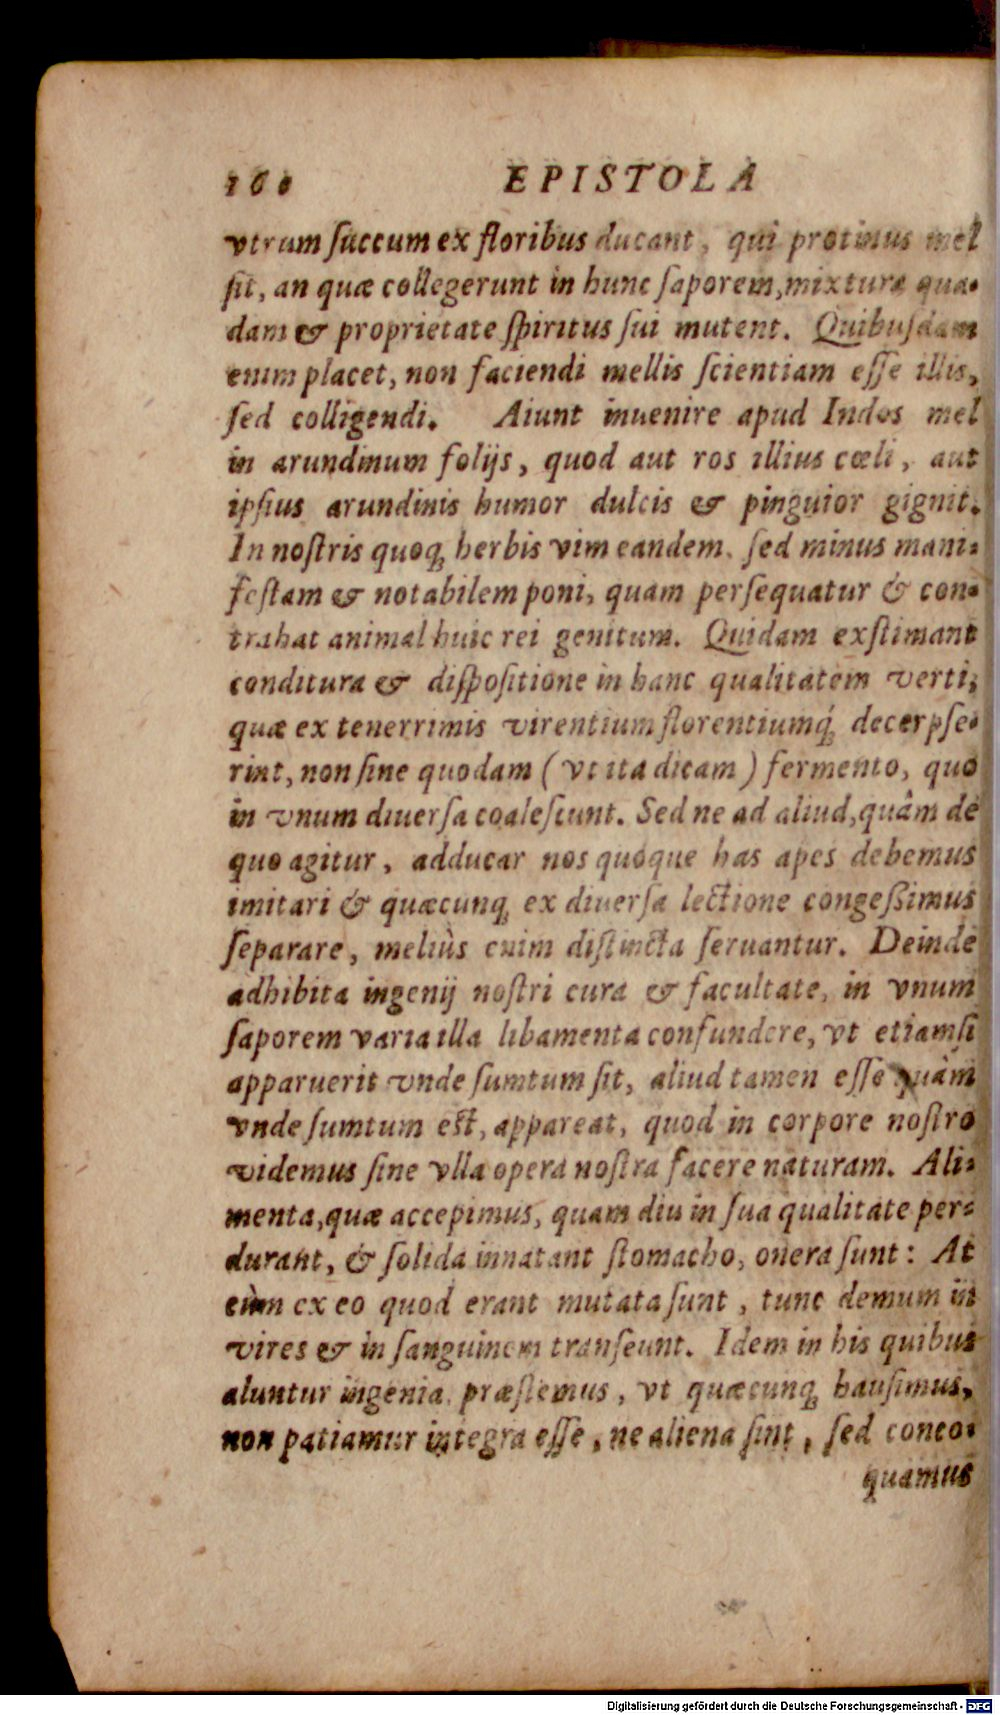 160 EPISTOLA
vtrum ſuccum ex floribus ducant, qui protinus mel
ſit, an quæ collegerunt in hunc ſaporem, mixtura qua-
dam & proprietate ſpiritus ſui mutent. Quibuſdam
enim placet, non faciendi mellis ſcientiam eſſe illis,
ſed colligendi. Aiunt inuenire apud Indos mel
in arundinum folijs, quod aut ros illius cœli, aut
ipſius arundinis humor dulcis & pinguior gignit.
In noſtris quoq; herbis vim eandem, ſed minus mani-
feſtam & notabilem poni, quam perſequatur & con-
trahat animal huic rei genitum. Quidam exſtimant
conditura & diſpoſitione in hanc qualitatem verti,
quæ ex tenerrimis virentium florentiumq́; decerpſe-
rint, non ſine quodam (vt ita dicam) fermento, quo
in vnum diuerſa coaleſcunt. Sed ne ad aliud, quâm de
quo agitur, adducar nos quoque has apes debemus
imitari & quæcunq; ex diuerſa lectione congeßimus
ſeparare, meliùs enim diſtincta ſeruantur. Deinde
adhibita ingenij noſtri cura & facultate, in vnum
ſaporem varia illa libamenta confundere, vt etiamſi
apparuerit vnde ſumtum ſit, aliud tamen eſſe quàm
vnde ſumtum eſt, appareat, quod in corpore noſtro
videmus ſine vlla opera noſtra facere naturam. Ali-
menta, quæ accepimus, quam diu in ſua qualitate per-
durant, & ſolida innatant ſtomacho, onera ſunt: At
cùm ex eo quod erant mutata ſunt, tunc demum in
vires & in ſanguinem tranſeunt. Idem in his quibus
aluntur ingenia, præſtemus, vt quæcunq; hauſimus,
non patiamur integra eſſe, ne aliena ſint, ſed conco-
quamus
Digitalisierung gefördert durch die Deutsche Forschungsgemeinschaft - DFG